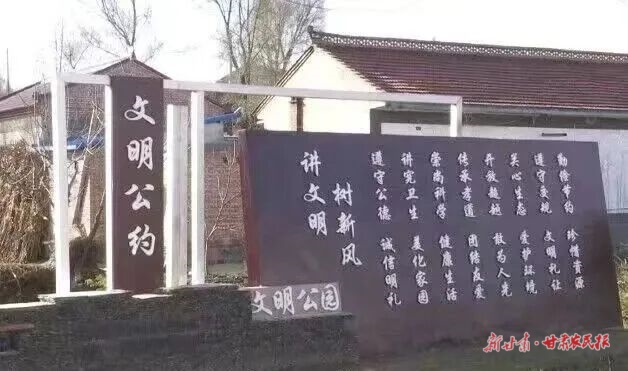 文明公约
讲文明
树新风
遵守公德 诚信明礼
讲究卫生 美化家园
崇尚科学 健康生活
传承孝道 团结友爱
开放超越 敢为人先
关心生态 爱护环境
遵守交规 文明礼让
勤俭节约 珍惜资源
文明公园
新甘肃·甘肃农民报